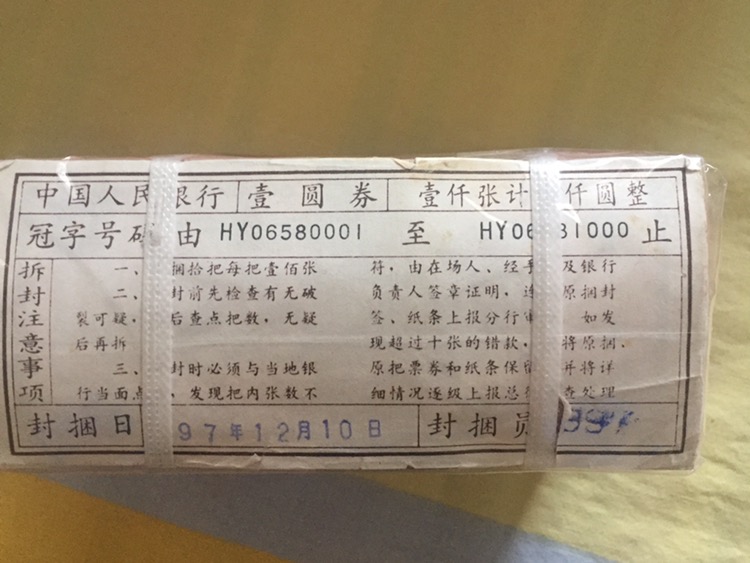 中国人民银行 壹圆券 壹仟张计 仟圆整
冠字号码由 HY06580001 至 HY06 81000 止
拆封注意事项
一、 捆拾把每把壹佰张
二、 封前先检查有无破
裂可疑, 后查点把数,无疑
后再拆
三、 封时必须与当地银
行当面点 ,发现把内张数不
符,由在场人、经手 及银行
负责人签章证明,连 原捆封
签、纸条上报分行审 如发
现超过十张的错款, 将原捆、
原把票券和纸条保留 并将详
细情况逐级上报总行 查处理
封捆日 97年12月10日 封捆员